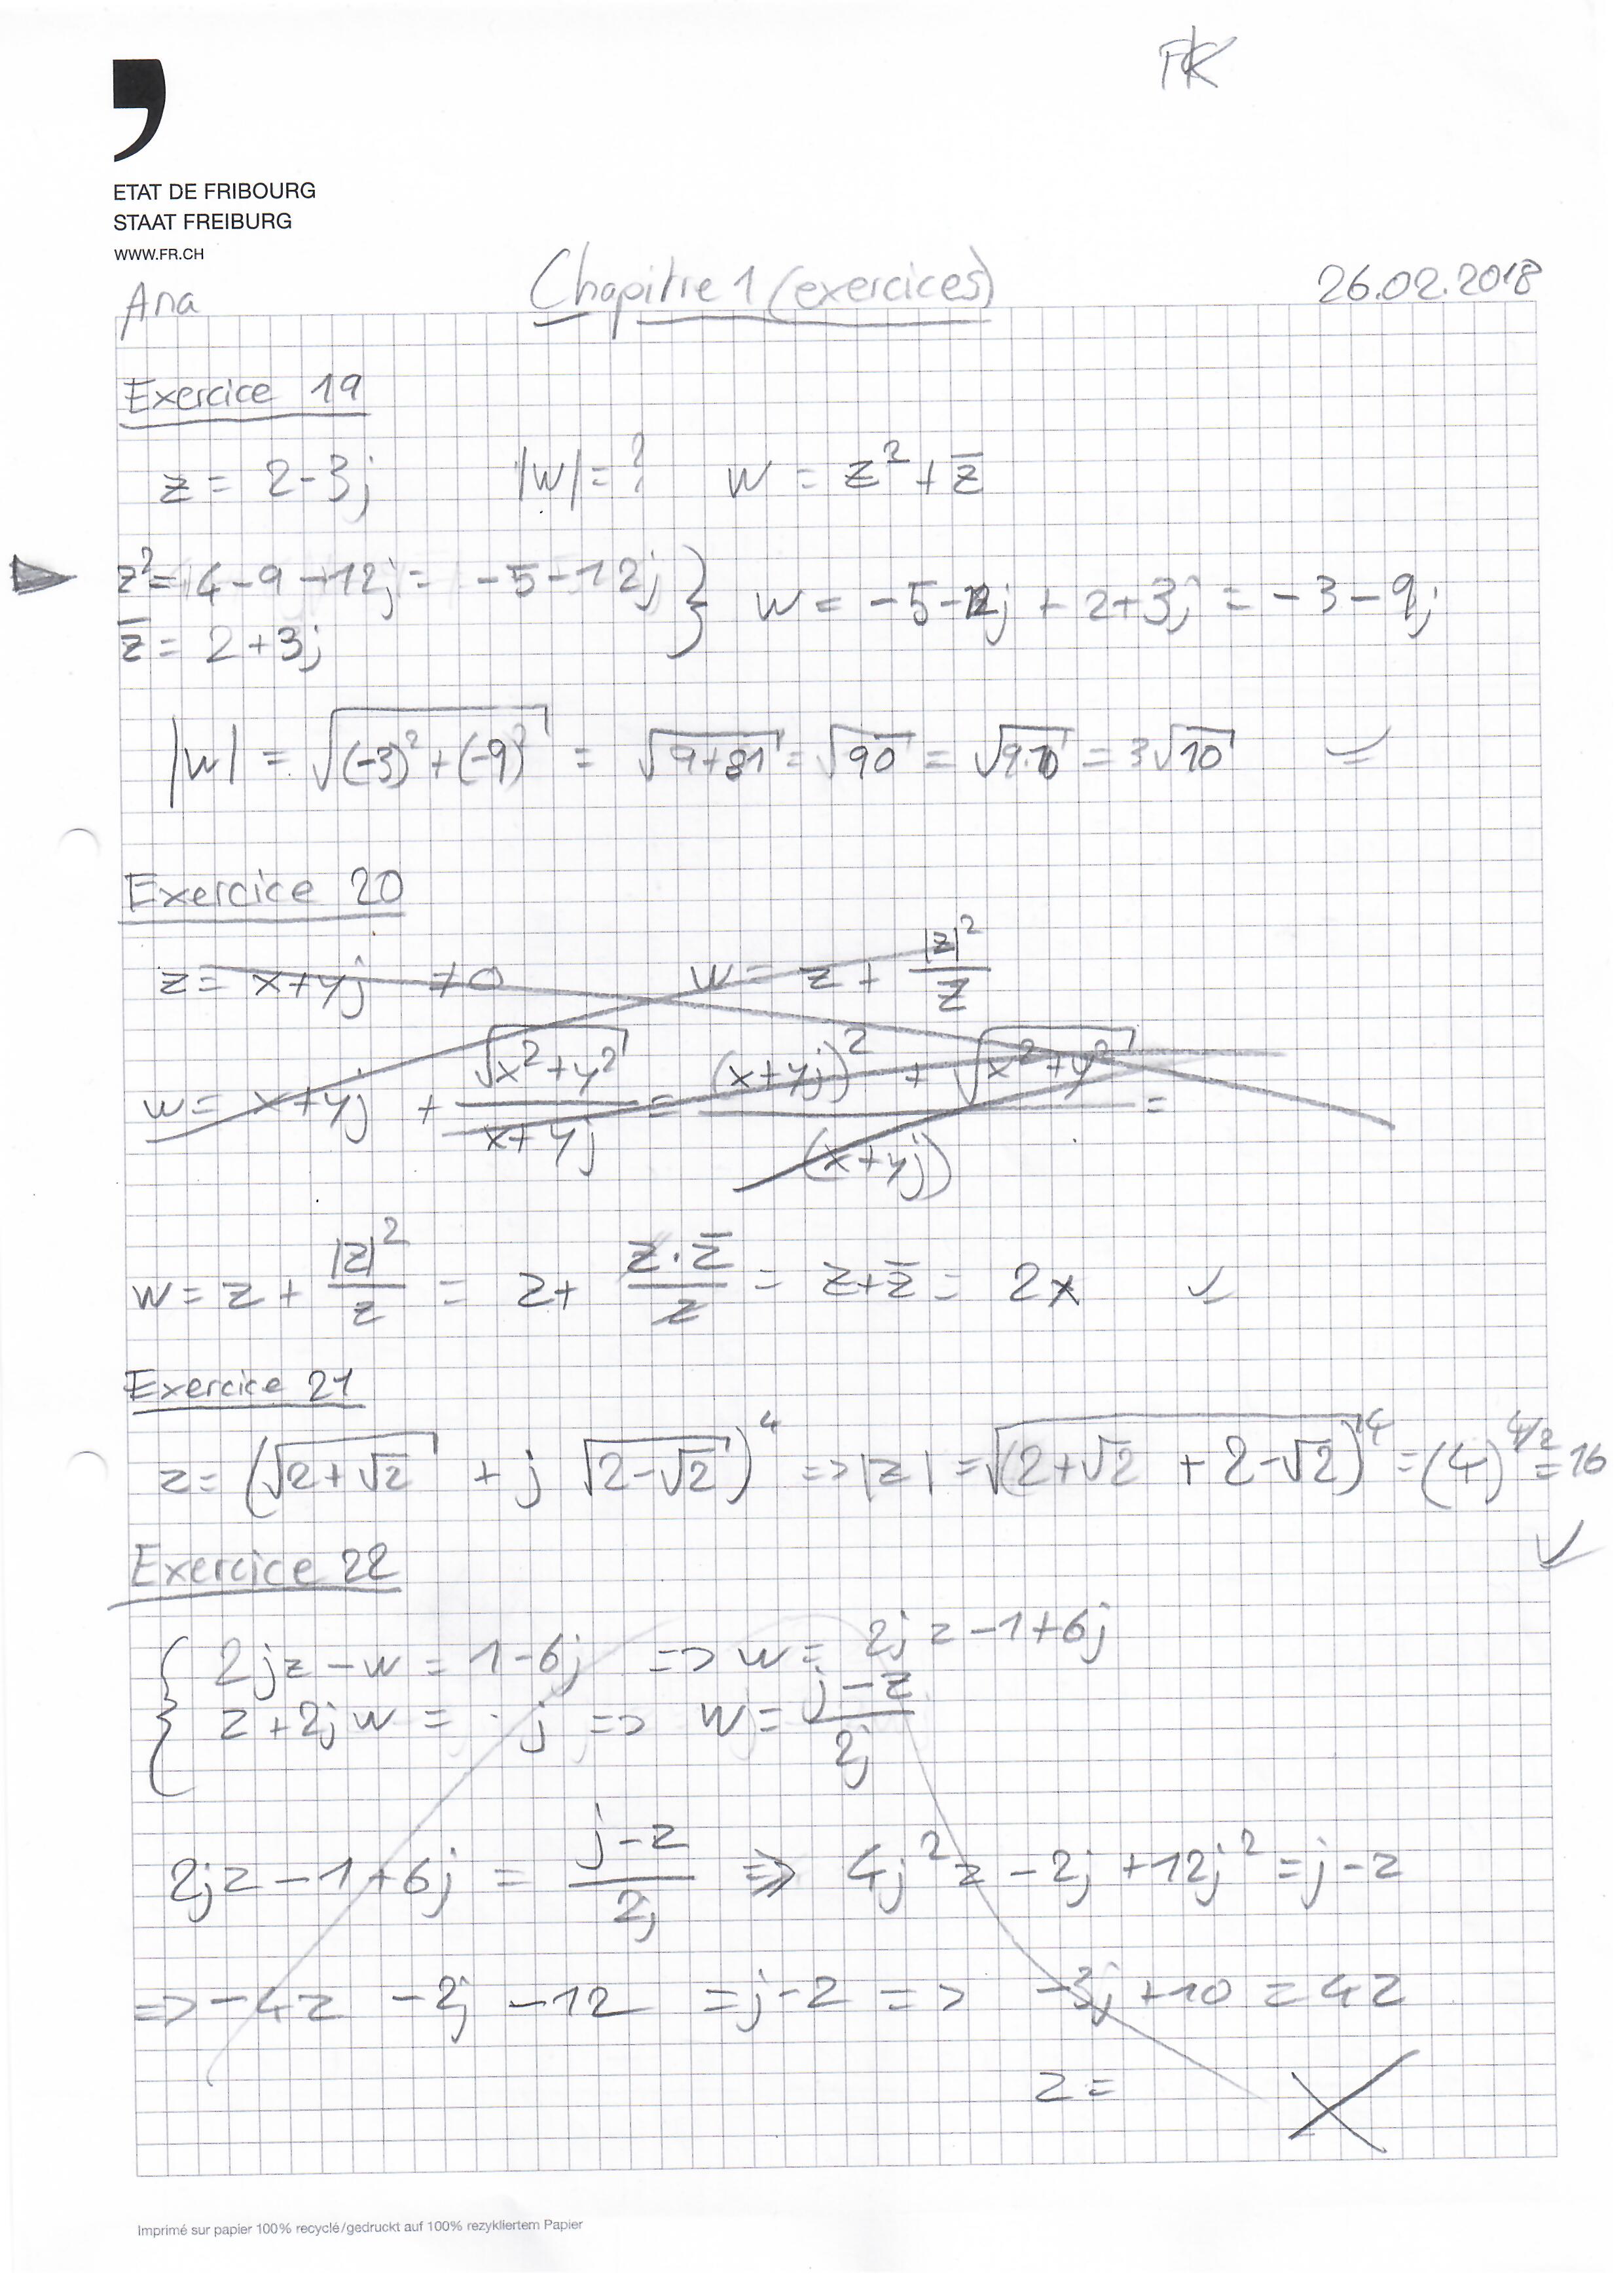 PK
ETAT DE FRIBOURG
STAAT FREIBURG
WWW.FR.CH
Ana Chapitre 1 (exercices) 26.02.2018
Exercice 19
z = 2-3j |w| = ? w = z² + z̅
z² = 4-9-12j = -5-12j } w = -5-12j + 2+3j = -3-9j
z̅ = 2+3j
|w| = √((-3)²+(-9)²) = √(9+81) = √90 = √(9·10) = 3√10 ✓
Exercice 20
z = x+yj ≠0 w = z + |z|²/z
w = x+yj + √(x²+y²)/(x+yj) = ((x+yj)² + √(x²+y²))/(x+yj) =
w = z + |z|²/z = z + (z·z̅)/z = z+z̅ = 2x ✓
Exercice 21
z = (√(2+√2) + j √(2-√2))⁴ => |z| = √((2+√2 + 2-√2)⁴) = (4)^(4/2) = 16
✓
Exercice 22
{ 2jz - w = 1-6j => w = 2jz-1+6j
z + 2jw = j => w = (j-z)/2j
2jz-1+6j = (j-z)/2j => 4j²z - 2j + 12j² = j-z
=> -4z -2j -12 = j-z => -3j +10 = 4z
z =
Imprimé sur papier 100% recyclé/gedruckt auf 100% rezykliertem Papier